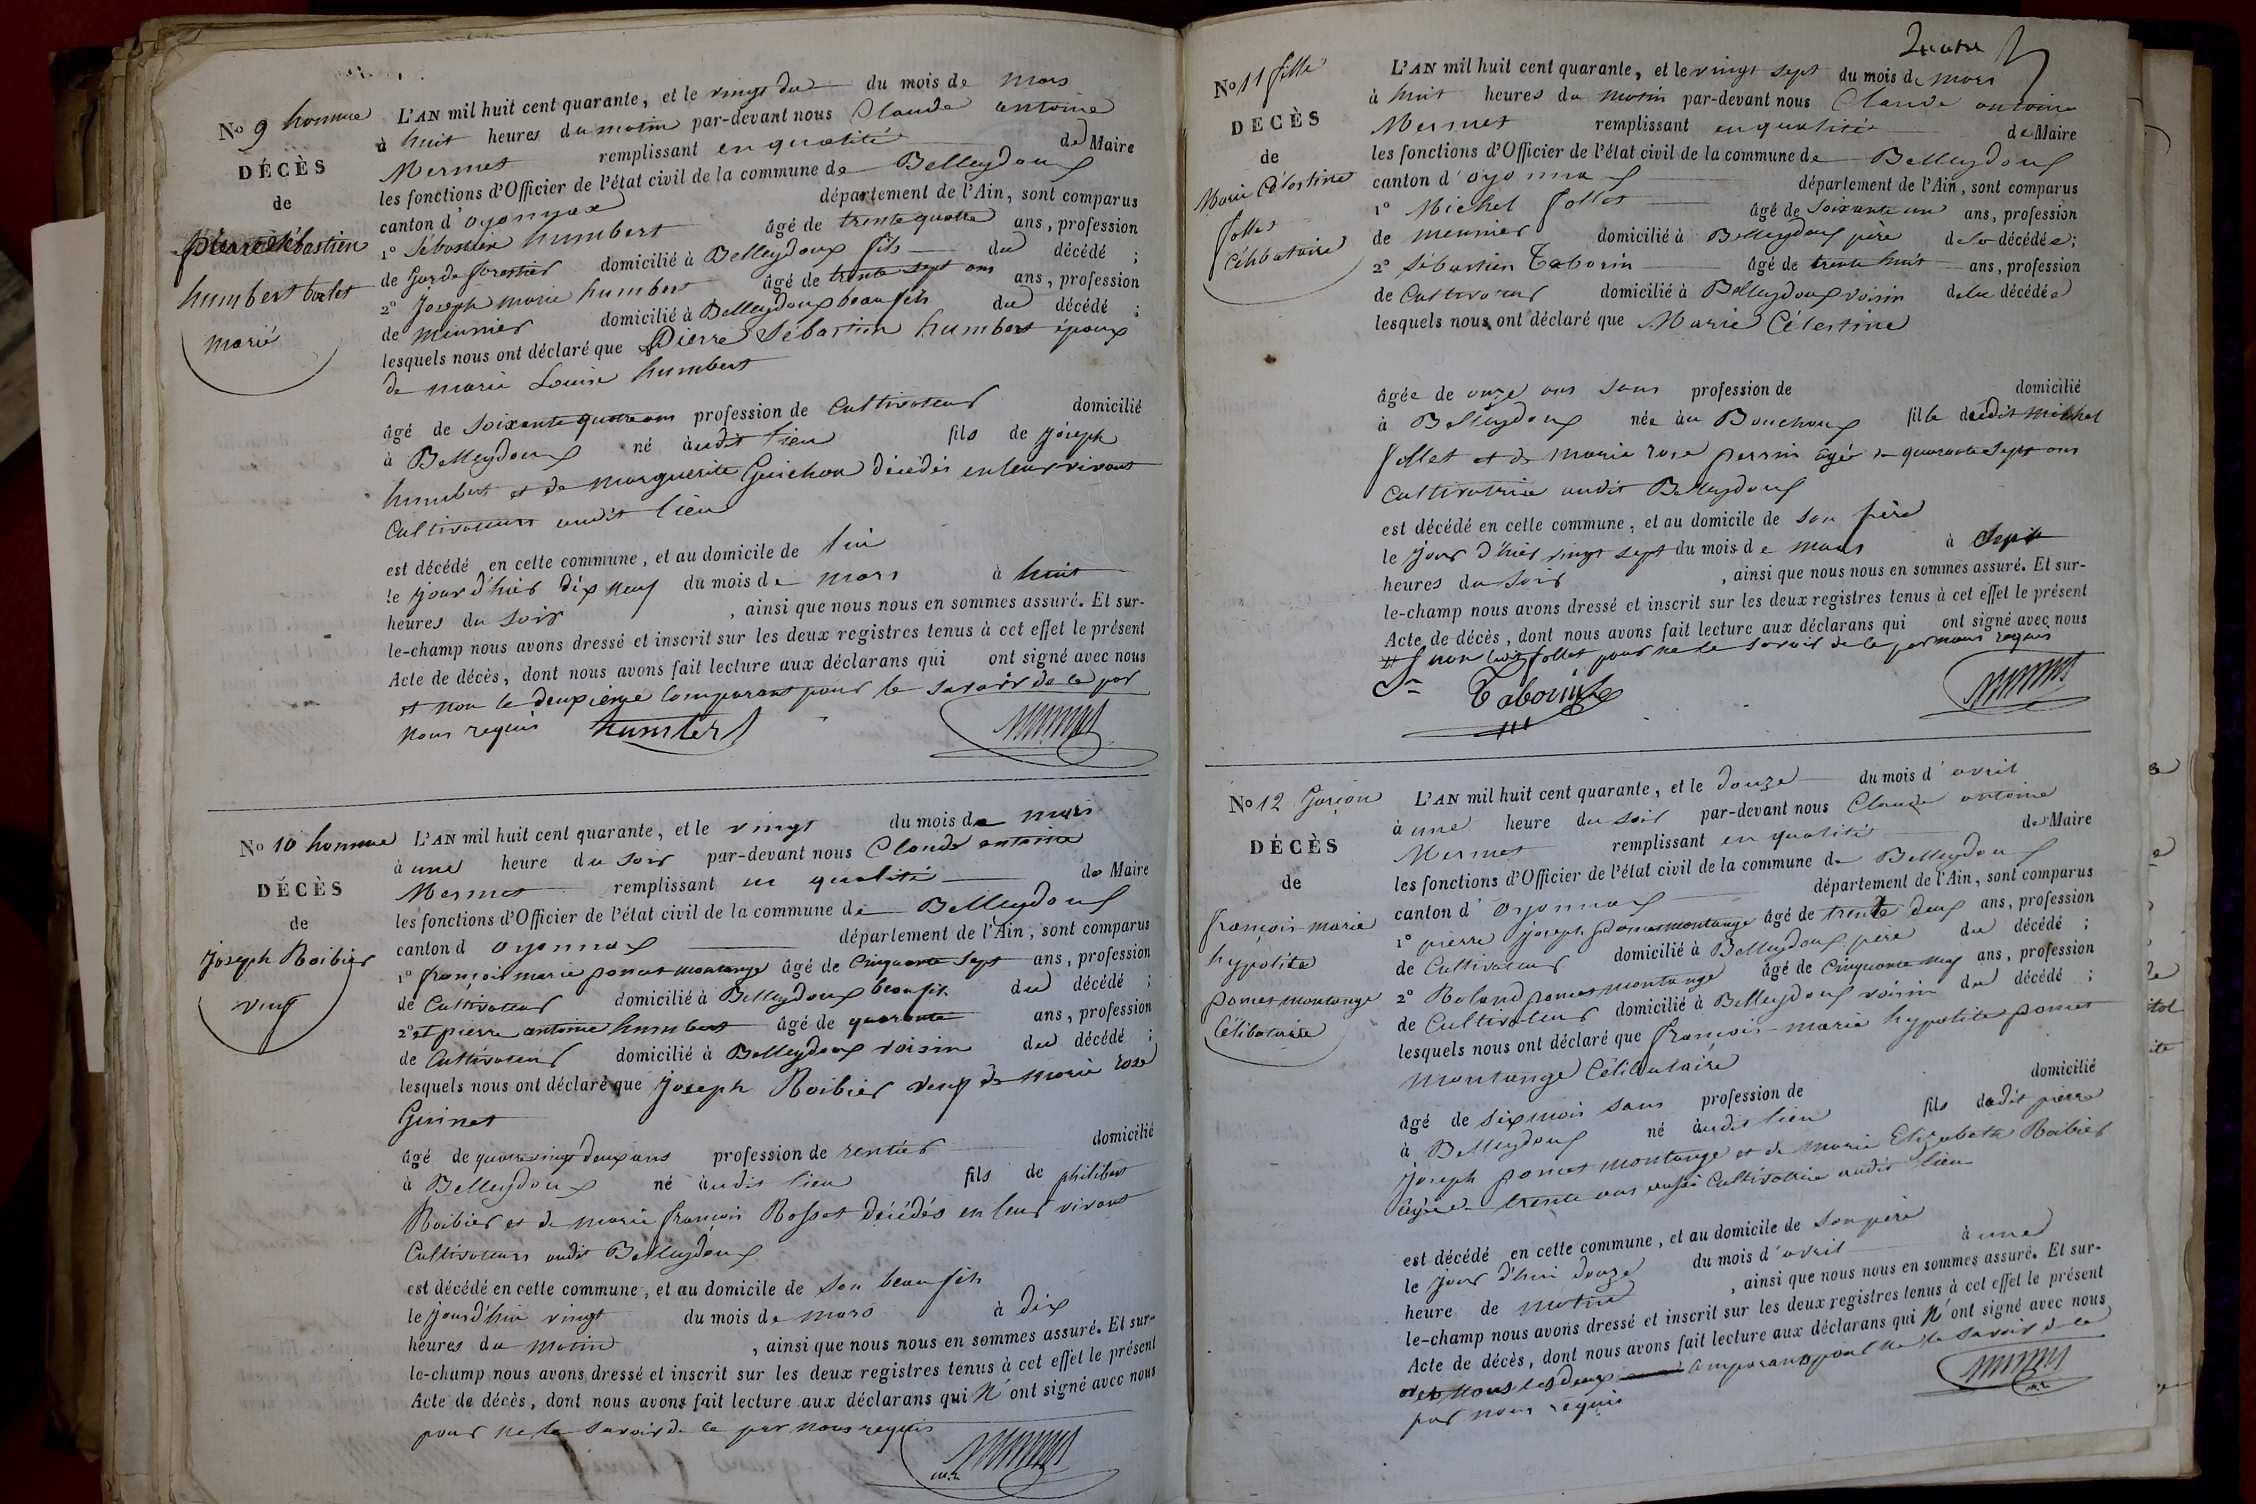 No 9 homme
DÉCÈS
de
pierre Sébastien
humbert
marié
L'AN mil huit cent quarante, et le vingt du mois de mars
à huit heures du matin par-devant nous Claude antoine
Mermet remplissant en qualité de Maire
les fonctions d'Officier de l'état civil de la commune de Belleydoux
canton d'oyonnax département de l'Ain, sont comparus
1o Sébastien humbert âgé de trente quatre ans, profession
de Garde forestier domicilié à Belleydoux fils du décédé ;
2o Joseph marie humbert âgé de trente sept ans ans, profession
de Meunier domicilié à Belleydoux beau fils du décédé ;
lesquels nous ont déclaré que Pierre Sébastien humbert époux
de marie Louise humbert
âgé de soixante quatre ans profession de Cultivateur domicilié
à Belleydoux né àudit lieu fils de Joseph
humbert et de Marguerite Guichon décédés en leur vivant
Cultivateurs audit lieu
est décédé en cette commune, et au domicile de lui
le jour d'hier dix neuf du mois de mars à huit
heures du soir , ainsi que nous nous en sommes assuré. Et sur-
le-champ nous avons dressé et inscrit sur les deux registres tenus à cet effet le présent
Acte de décès, dont nous avons fait lecture aux déclarans qui ont signé avec nous
et non le deuxième Comparant pour le savoir de ce par
nous requis humbert
No 10 homme
DÉCÈS
de
Joseph Roibier
veuf
L'AN mil huit cent quarante, et le vingt du mois de mars
à une heure du soir par-devant nous Claude antoine
Mermet remplissant en qualité de Maire
les fonctions d'Officier de l'état civil de la commune de Belleydoux
canton d oyonnax département de l'Ain, sont comparus
1o françois marie poncet montange âgé de Cinquante sept ans, profession
de Cultivateur domicilié à Belleydoux beau fils du décédé ;
2o et pierre antoine humbert âgé de quarante ans, profession
de Cultivateur domicilié à Belleydoux voisin du décédé ;
lesquels nous ont déclaré que Joseph Roibier veuf de Marie rose
Guinet
âgé de quatre vingt deux ans profession de rentier domicilié
à Belleydoux né àudit lieu fils de philibert
Roibier et de marie françois Rosset décédés en leur vivant
Cultivateurs audit Belleydoux
est décédé en cette commune, et au domicile de son beau fils
le jourd'hui vingt du mois de mars à dix
heures du matin , ainsi que nous nous en sommes assuré. Et sur-
le-champ nous avons dressé et inscrit sur les deux registres tenus à cet effet le présent
Acte de décès, dont nous avons fait lecture aux déclarans qui N'ont signé avec nous
pour ne le savoir de ce par nous requis
No 11 fille
DÉCÈS
de
Marie Célestine
follet
Célibataire
L'AN mil huit cent quarante, et le vingt sept du mois de mars
à huit heures du matin par-devant nous Claude antoine
Mermet remplissant en qualité de Maire
les fonctions d'Officier de l'état civil de la commune de Belleydoux
canton d'oyonnax département de l'Ain, sont comparus
1o Michel follet âgé de soixante un ans, profession
de meunier domicilié à Belleydoux père de la décédée ;
2o Sébastien Tabourin âgé de trente huit ans, profession
de Cultivateur domicilié à Belleydoux voisin de la décédée
lesquels nous ont déclaré que Marie Célestine
âgée de onze ans sans profession de domicilié
à Belleydoux née àu Bouchoux fille dudit Michel
follet et de marie rose perrin âgée de quarante sept ans
Cultivatrice audit Belleydoux
est décédé en cette commune, et au domicile de son père
le jour d'hier vingt sept du mois de mars à sept
heures du soir , ainsi que nous nous en sommes assuré. Et sur-
le-champ nous avons dressé et inscrit sur les deux registres tenus à cet effet le présent
Acte de décès, dont nous avons fait lecture aux déclarans qui ont signé avec nous
non ledit follet pour ne le savoir de ce par nous requis
Tabourin
No 12 Garçon
DÉCÈS
de
françois marie
hypolite
poncet montange
Célibataire
L'AN mil huit cent quarante, et le douze du mois d'avril
à une heure du soir par-devant nous Claude antoine
Mermet remplissant en qualité de Maire
les fonctions d'Officier de l'état civil de la commune de Belleydoux
canton d' oyonnax département de l'Ain, sont comparus
1o pierre joseph poncet montange âgé de trente deux ans, profession
de Cultivateur domicilié à Belleydoux père du décédé ;
2o Roland poncet montange âgé de Cinquante neuf ans, profession
de Cultivateur domicilié à Belleydoux voisin du décédé ;
lesquels nous ont déclaré que françois marie hypolite poncet
montange Célibataire
âgé de six mois sans profession de domicilié
à Belleydoux né àudit lieu fils dudit pierre
joseph poncet montange et de Marie Elisabeth Roibier
âgée de trente ans aussi Cultivatrice audit lieu
est décédé en cette commune, et au domicile de son père
le jour d'hui douze du mois d'avril à une
heure de matin , ainsi que nous nous en sommes assuré. Et sur-
le-champ nous avons dressé et inscrit sur les deux registres tenus à cet effet le présent
Acte de décès, dont nous avons fait lecture aux déclarans qui N'ont signé avec nous
les deux comparants pour ne le savoir de ce
par nous requis